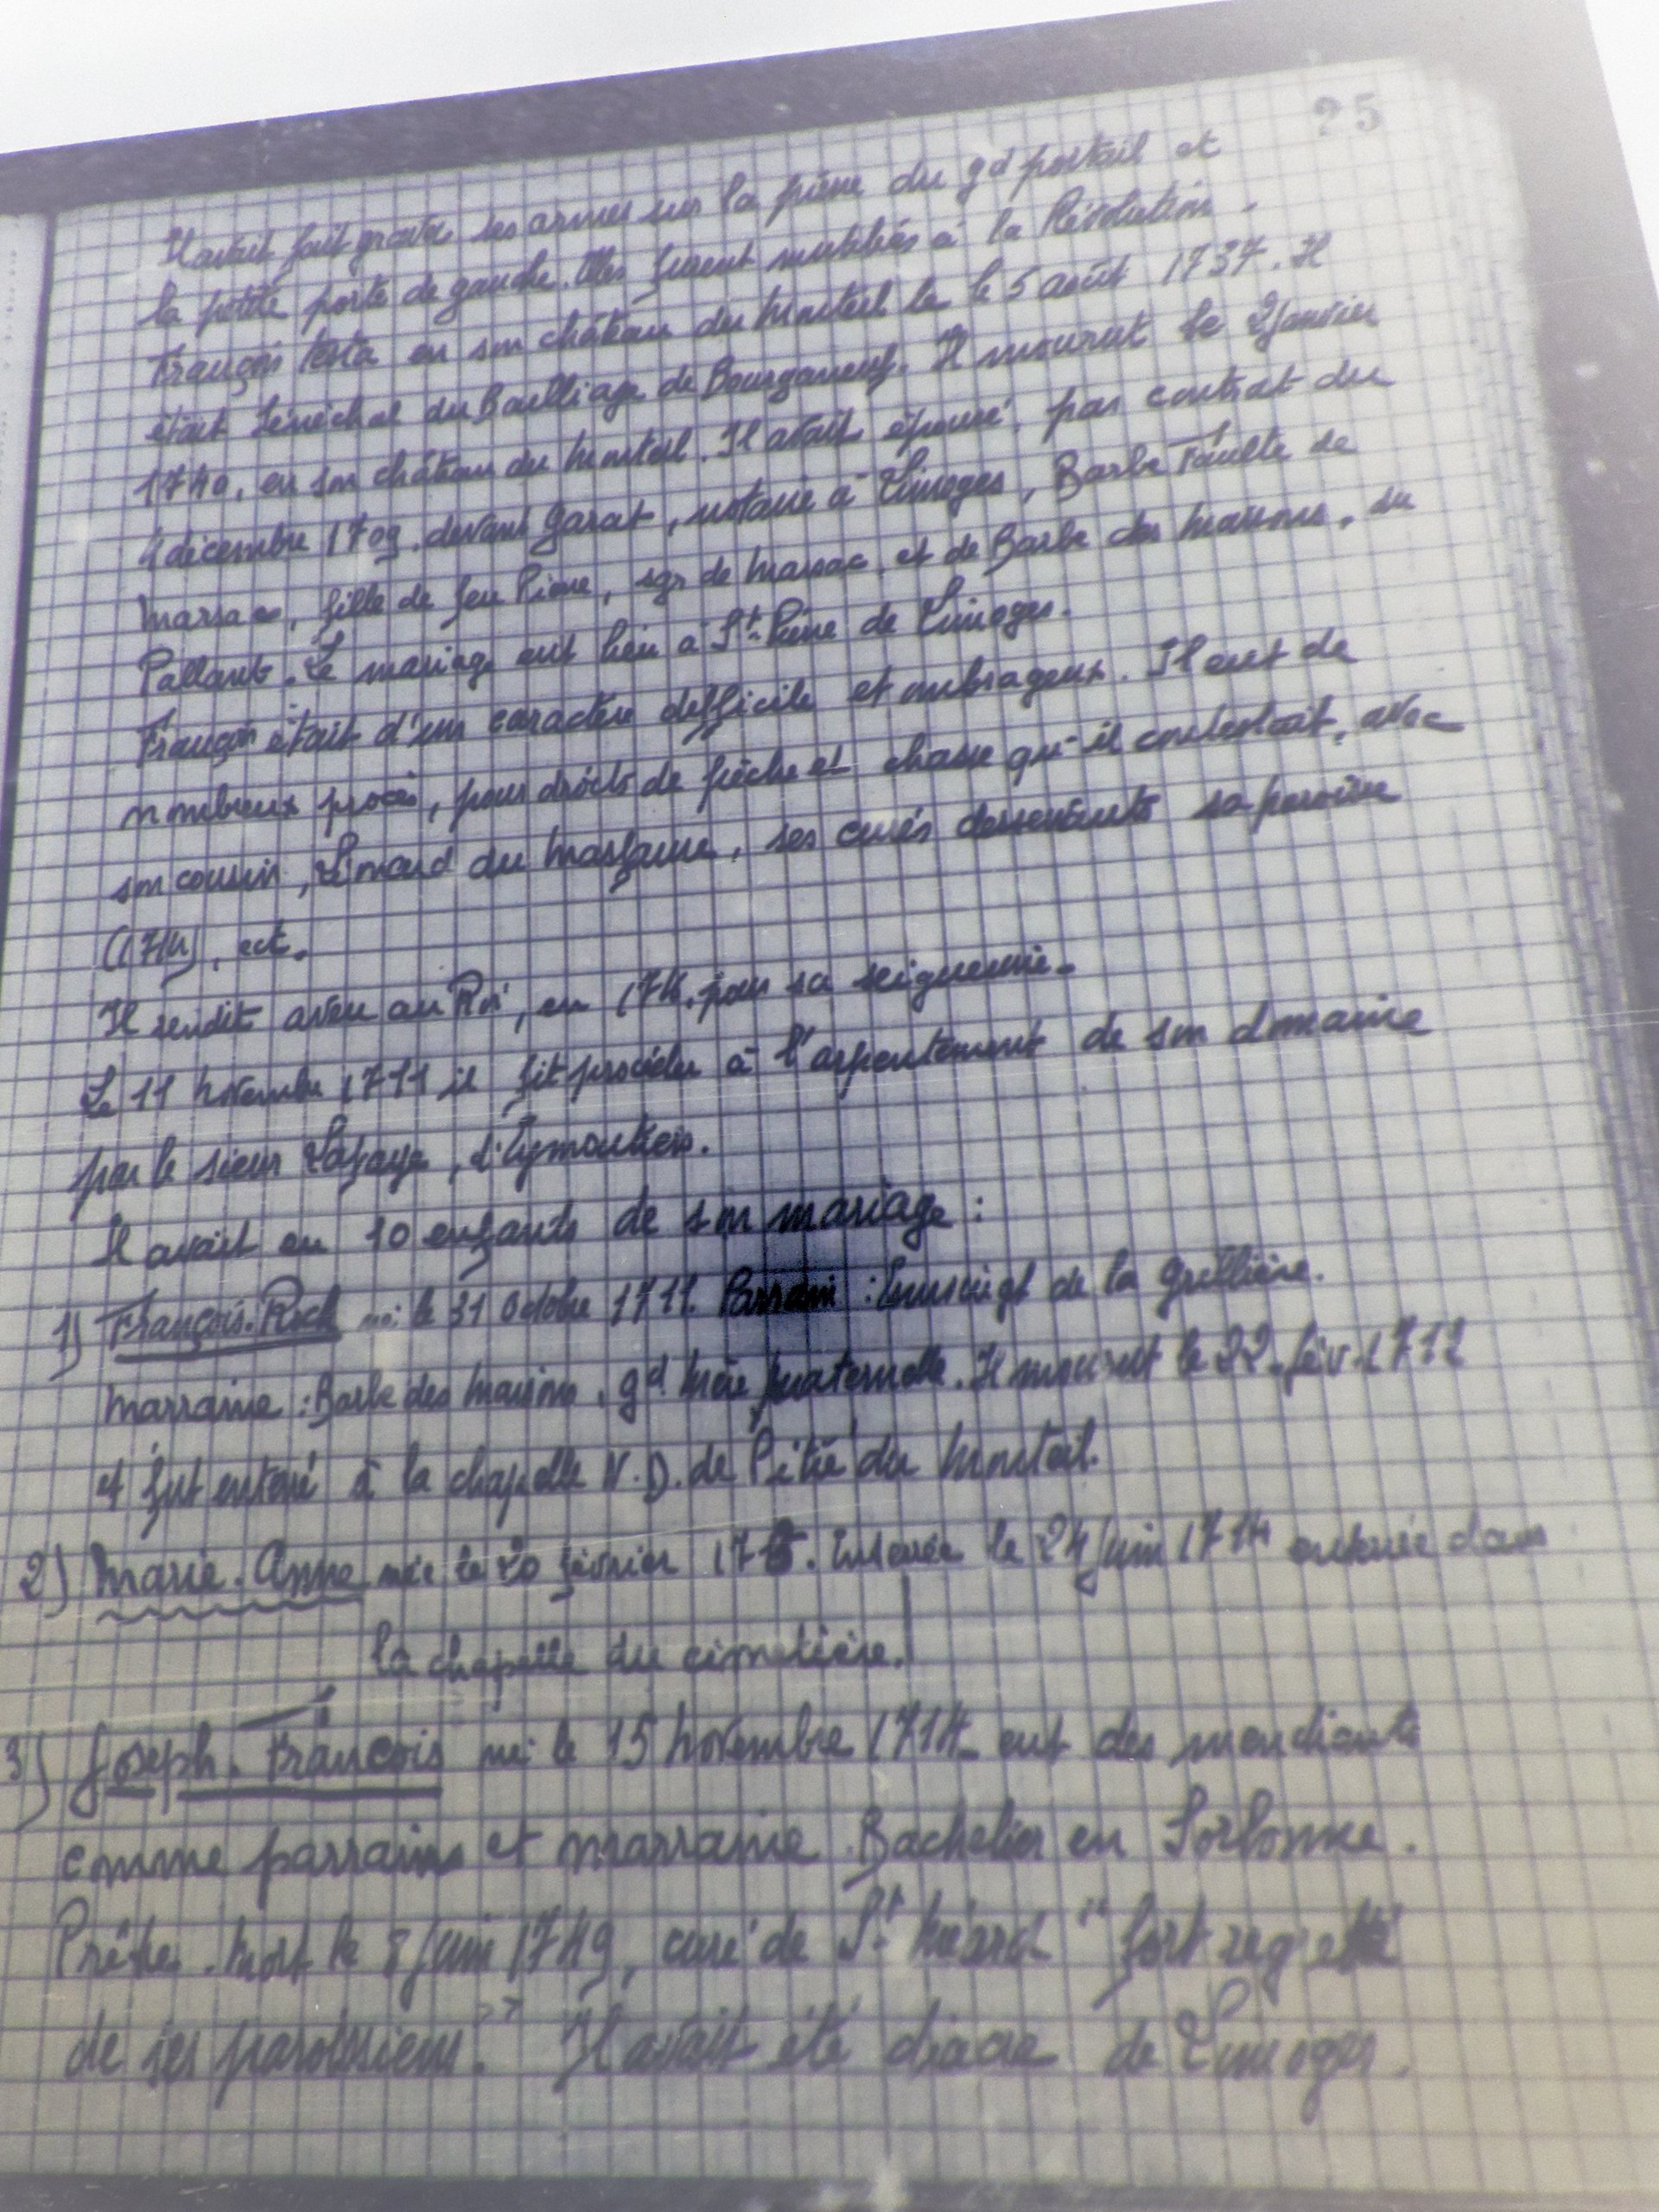 25
Il avait fait graver ses armes sur la pierre du gd portail et
la petite porte de gauche. Elles furent mutilées à la Révolution.
François testa en son château du Monteil le le 5 août 1737. Il
était Sénéchal du Bailliage de Bourganeuf. Il mourut le 2 janvier
1740, en son château du Monteil. Il avait épousé, par contrat du
4 décembre 1709, devant Garat, notaire à Limoges, Barbe Faulte de
Marsac, fille de feu Pierre, sgr de Marsac, et de Barbe des Maisons, du
Pallant. Le mariage eut lieu à St-Pierre de Limoges.
François était d'un caractère difficile et ombrageux. Il eut de
nombreux procès, pour droits de pêche et chasse qu'il contestait, avec
son cousin, du Masfaure, ses curés desservants sa paroisse
ect.
Il rendit aveu au Roi, en pour sa seigneurie.
Le 11 Novembre 1711 il fit procéder à l'arpentement de son domaine
par le sieur Lafaye, d'Eymoutiers.
Il avait eu 10 enfants de son mariage :
1) François-Roch né le 31 Octobre 1711. Parrain : de la Grillière.
Marraine : Barbe des Maisons, gd Mère maternelle. Il mourut le 22 fév. 1712
et fut enterré à la chapelle N.D. de Pitié du Monteil.
2) Marie-Anne née le 20 février le 24 juin 1714 enterrée dans
la chapelle du cimetière.
3) Joseph-François né le 15 Novembre 1714 eut des mendiants
comme parrains et marraine. Bachelier en Sorbonne.
Prêtre. Mort le 8 juin 1749, curé de St Méard "fort regretté
de ses paroissiens." Il avait été diacre de Limoges.